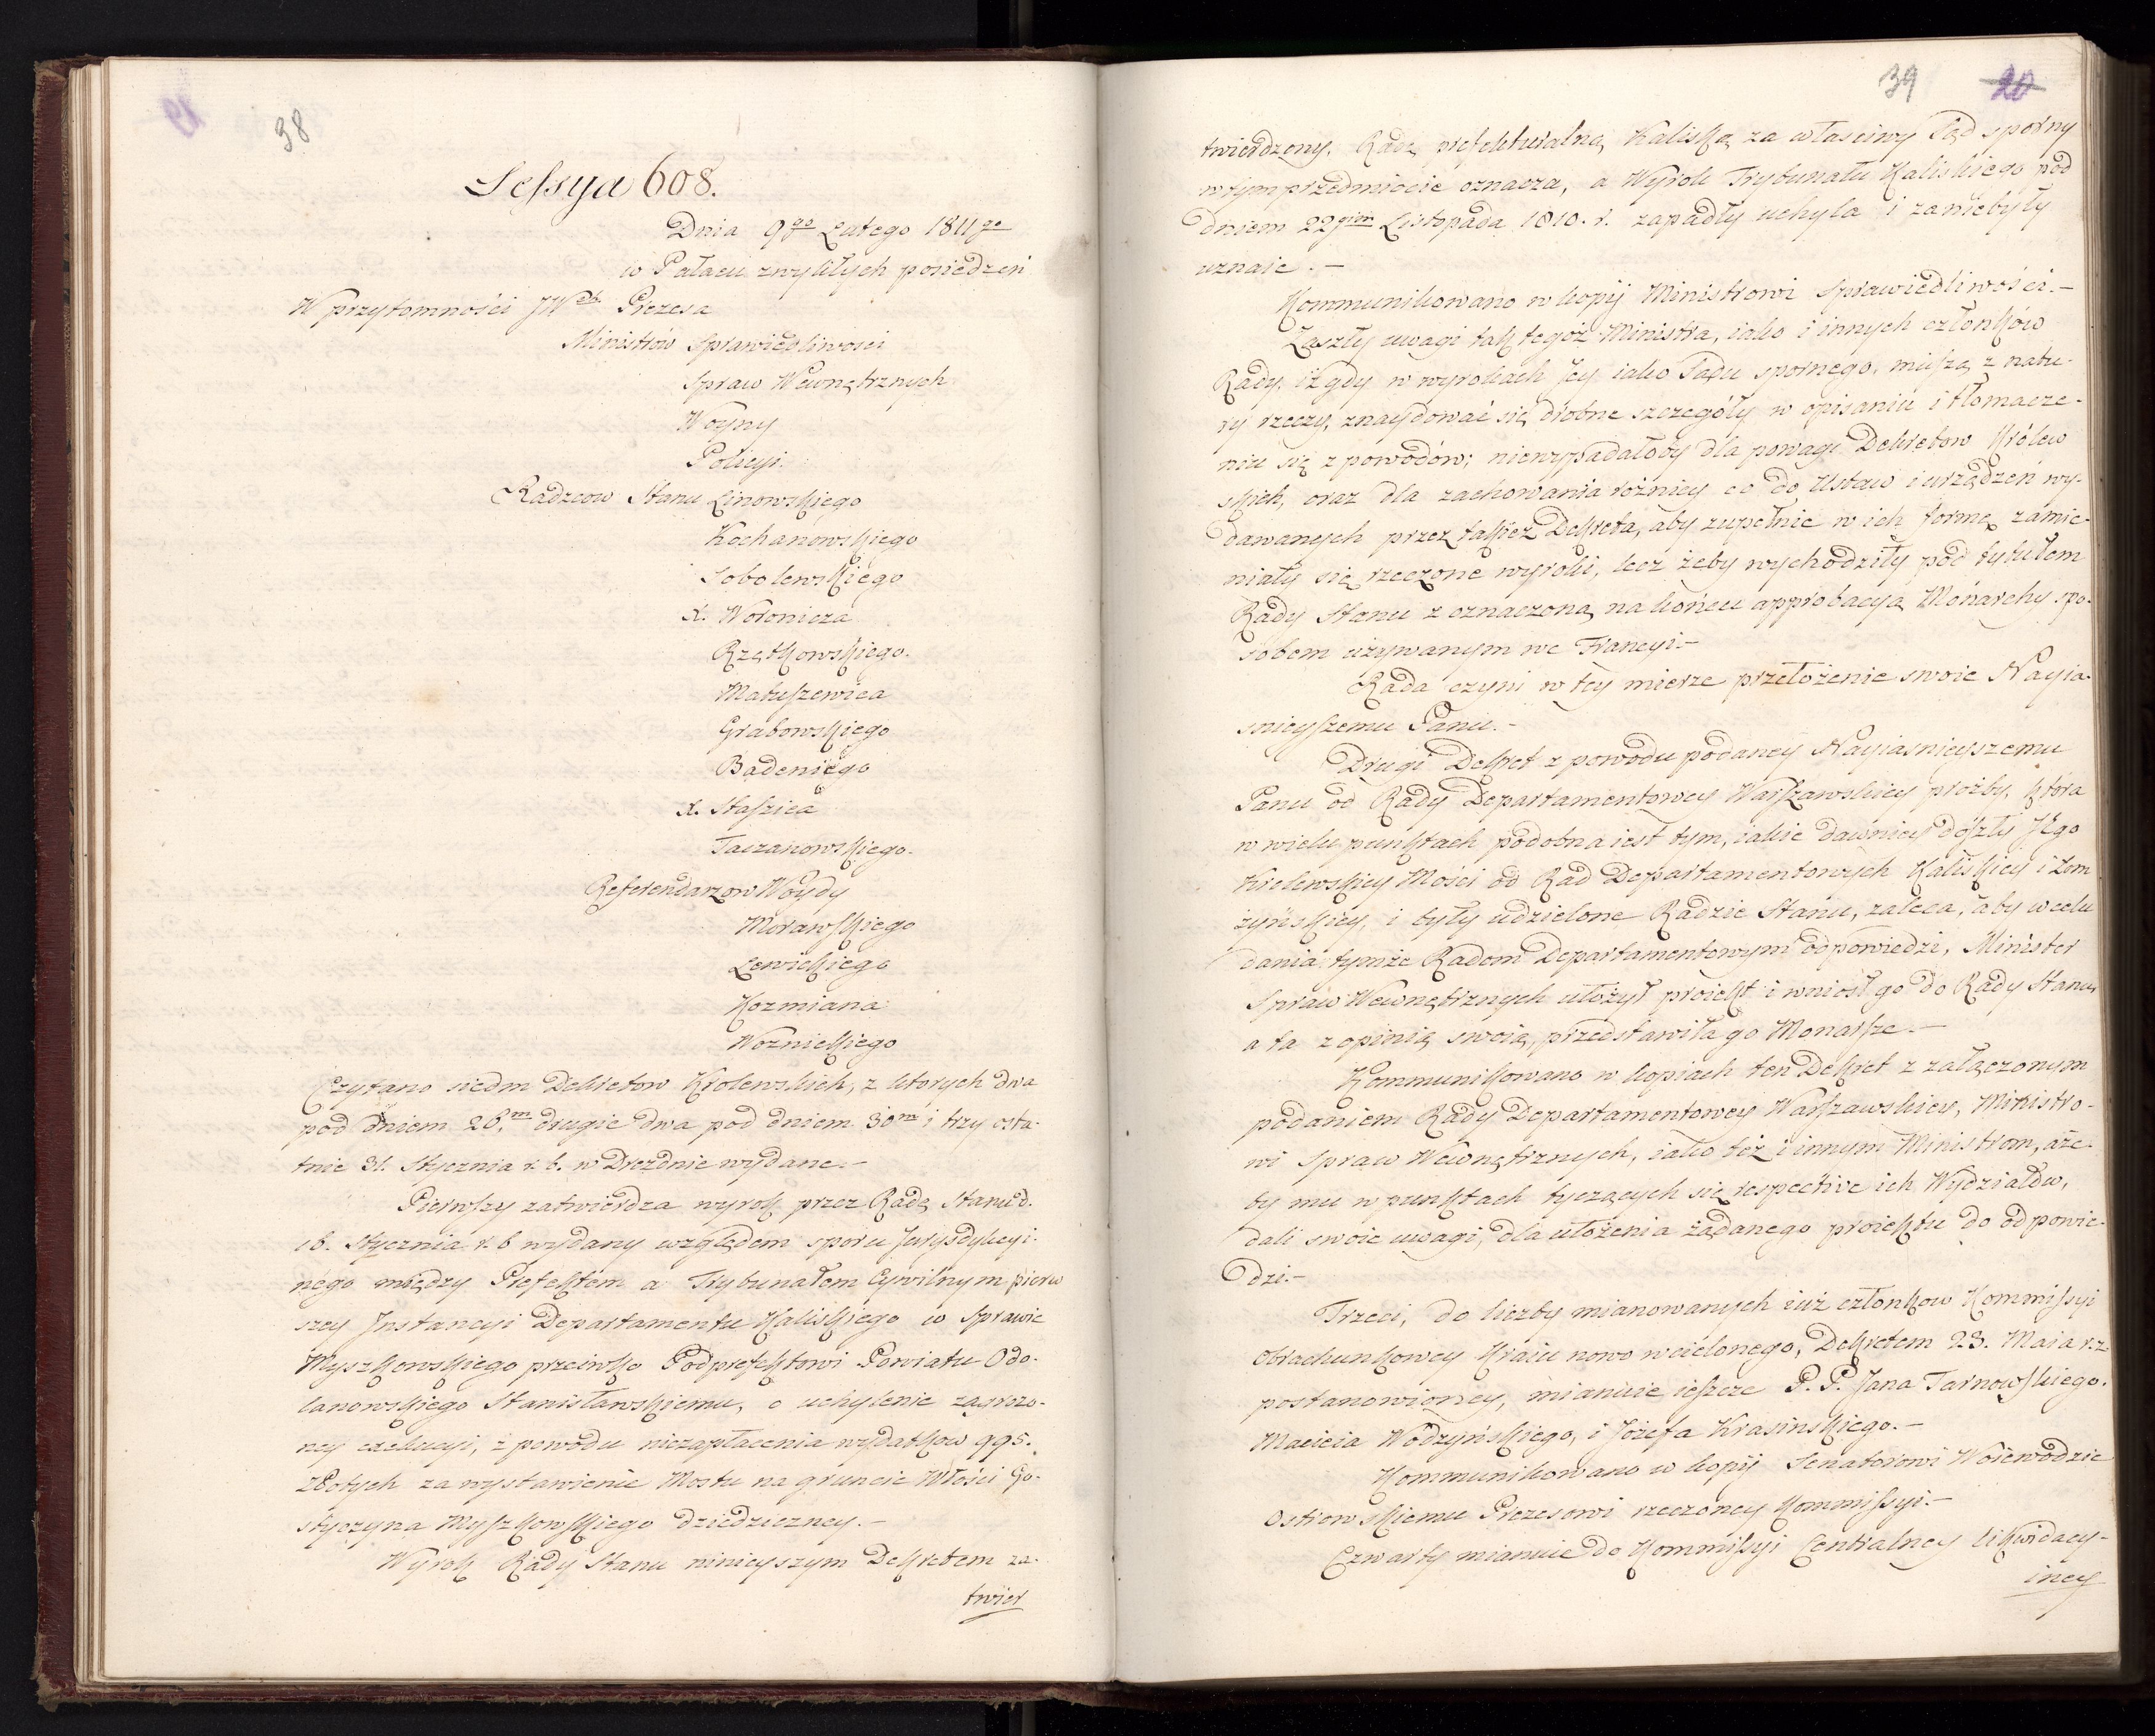 38
Sessya 608.
Dnia 9go Lutego 1811go
w Pałacu zwykłych posiedzeń
W przytomności JWch Prezesa
Ministrów Sprawiedliwosci
Spraw Wewnętrznych
Woyny
Policyi.
Radzcow Stanu Linowskiego
Kochanowskiego
Sobolewskiego
X. Woronicza
Rzętkowskiego.
Matuszewica
Grabowskiego
Badeniego
X. Staszica
Taczanowskiego.
Referendarzow Woydy
Morawskiego
Lewickiego
Kozmiana
Woznickiego
Czytano siedm Dekretow Krolewskich, z ktorych dwa
pod dniem 28.m drugie dwa pod dniem 30m i trzy osta-
tnie 31. Stycznia r. b. w Dreznie wydane.-
Pierwszy zatwierdza wyrok przez Radę Stanu d.
16. Stycznia r. b wydany względem sporu Jurysdykcyi-
nego między Prefektem a Trybunałem Cywilnym pierw
szey Jnstancyi Departamentu Kaliskiego w Sprawie
Myszkowskiego przeciwko Podprefektowi Powiatu Odo-
lanowskiego Stanisławskiemu, o uchylenie zagrozo-
ney exekucyi, z powodu niezapłacenia wydatkow 995.
złotych za wystawienie Mostu na gruncie Włości Go-
styczyna Myszkowskiego dziedziczney.-
Wyrok Rady Stanu ninieyszym Dekretem za-
twier
39 20
twierdzony. Radę prefekturalną Kaliską za własciwy Sąd sporny
w tym przedmiocie oznacza, a Wyrok Trybunału Kaliskiego pod
dniem 22gim Listopada 1810. r. zapadły uchyla i za niebyły
uznaie.-
Kommunikowano w kopij Ministrowi Sprawiedliwości.-
Zaszły uwagi tak tegóż Ministra, iako i innych członków
Rady, iż gdy w wyrokach Jey iako Sądu spornego, muszą z natu-
ry rzeczy, znaydować się drobne szczegóły w opisaniu i tłomacze-
niu się z powodów; niewypadałoby dla powagi Dekretow Królew
skich, oraz dla zachowania rożnicy co do Ustaw i urządzeń wy-
dawanych przez takież Dekreta, aby zupełnie w ich formę zamie-
niały się rzeczone wyroki, lecz żeby wychodziły pod tytułem
Rady Stanu z oznaczoną na końcu approbacyą Monarchy spo-
sobem używanym we Francyi-
Rada czyni w tey mierze przełożenie swoie Nayia-
snieyszemu Panu.-
Drugi Dekret z powodu podaney Nayiasnieyszemu
Panu od Rady Departamentowey Warszawskiey prozby, która
w wielu punktach podobna iest tym, iakie dawniey doszły Jego
Krolewskiey Mości od Rad Departamentowych Kaliskiey i Łom
żyńskiey, i były udzielone Radzie Stanu, zaleca, aby w celu
dania tymże Radom Departamentowym odpowiedzi, Minister
Spraw Wewnętrznych ułożył proiekt i wniosł go do Rady Stanu,
a ta z opinią swoią, przedstawiła go Monarsze.-
Kommunikowano w kopiach ten Dekret z załączonym
podaniem Rady Departamentowey Warszawskiey, Ministro-
wi Spraw Wewnętrznych, iako też i innym Ministrom, aże-
by mu w punktach tyczących się respective ich Wydziałów,
dali swoie uwagi, dla ułożenia żądanego proiektu do odpowie-
dzi.-
Trzeci, do liczby mianowanych iuż członkow Kommissyi
Obrachunkowey Kraiu nowo wcielonego, Dekretem 23. Maia r. z.
postanowioney, mianuie ieszcze P. P. Jana Tarnowskiego.
Macieia Wodzyńskiego, i Józefa Krasinskiego.-
Kommunikowano w kopij Senatorowi Woiewodzie
Ostrowskiemu Prezesowi rzeczoney Kommissyi.-
Czwarty mianuie do Kommissyi Centralney likwidacy-
iney